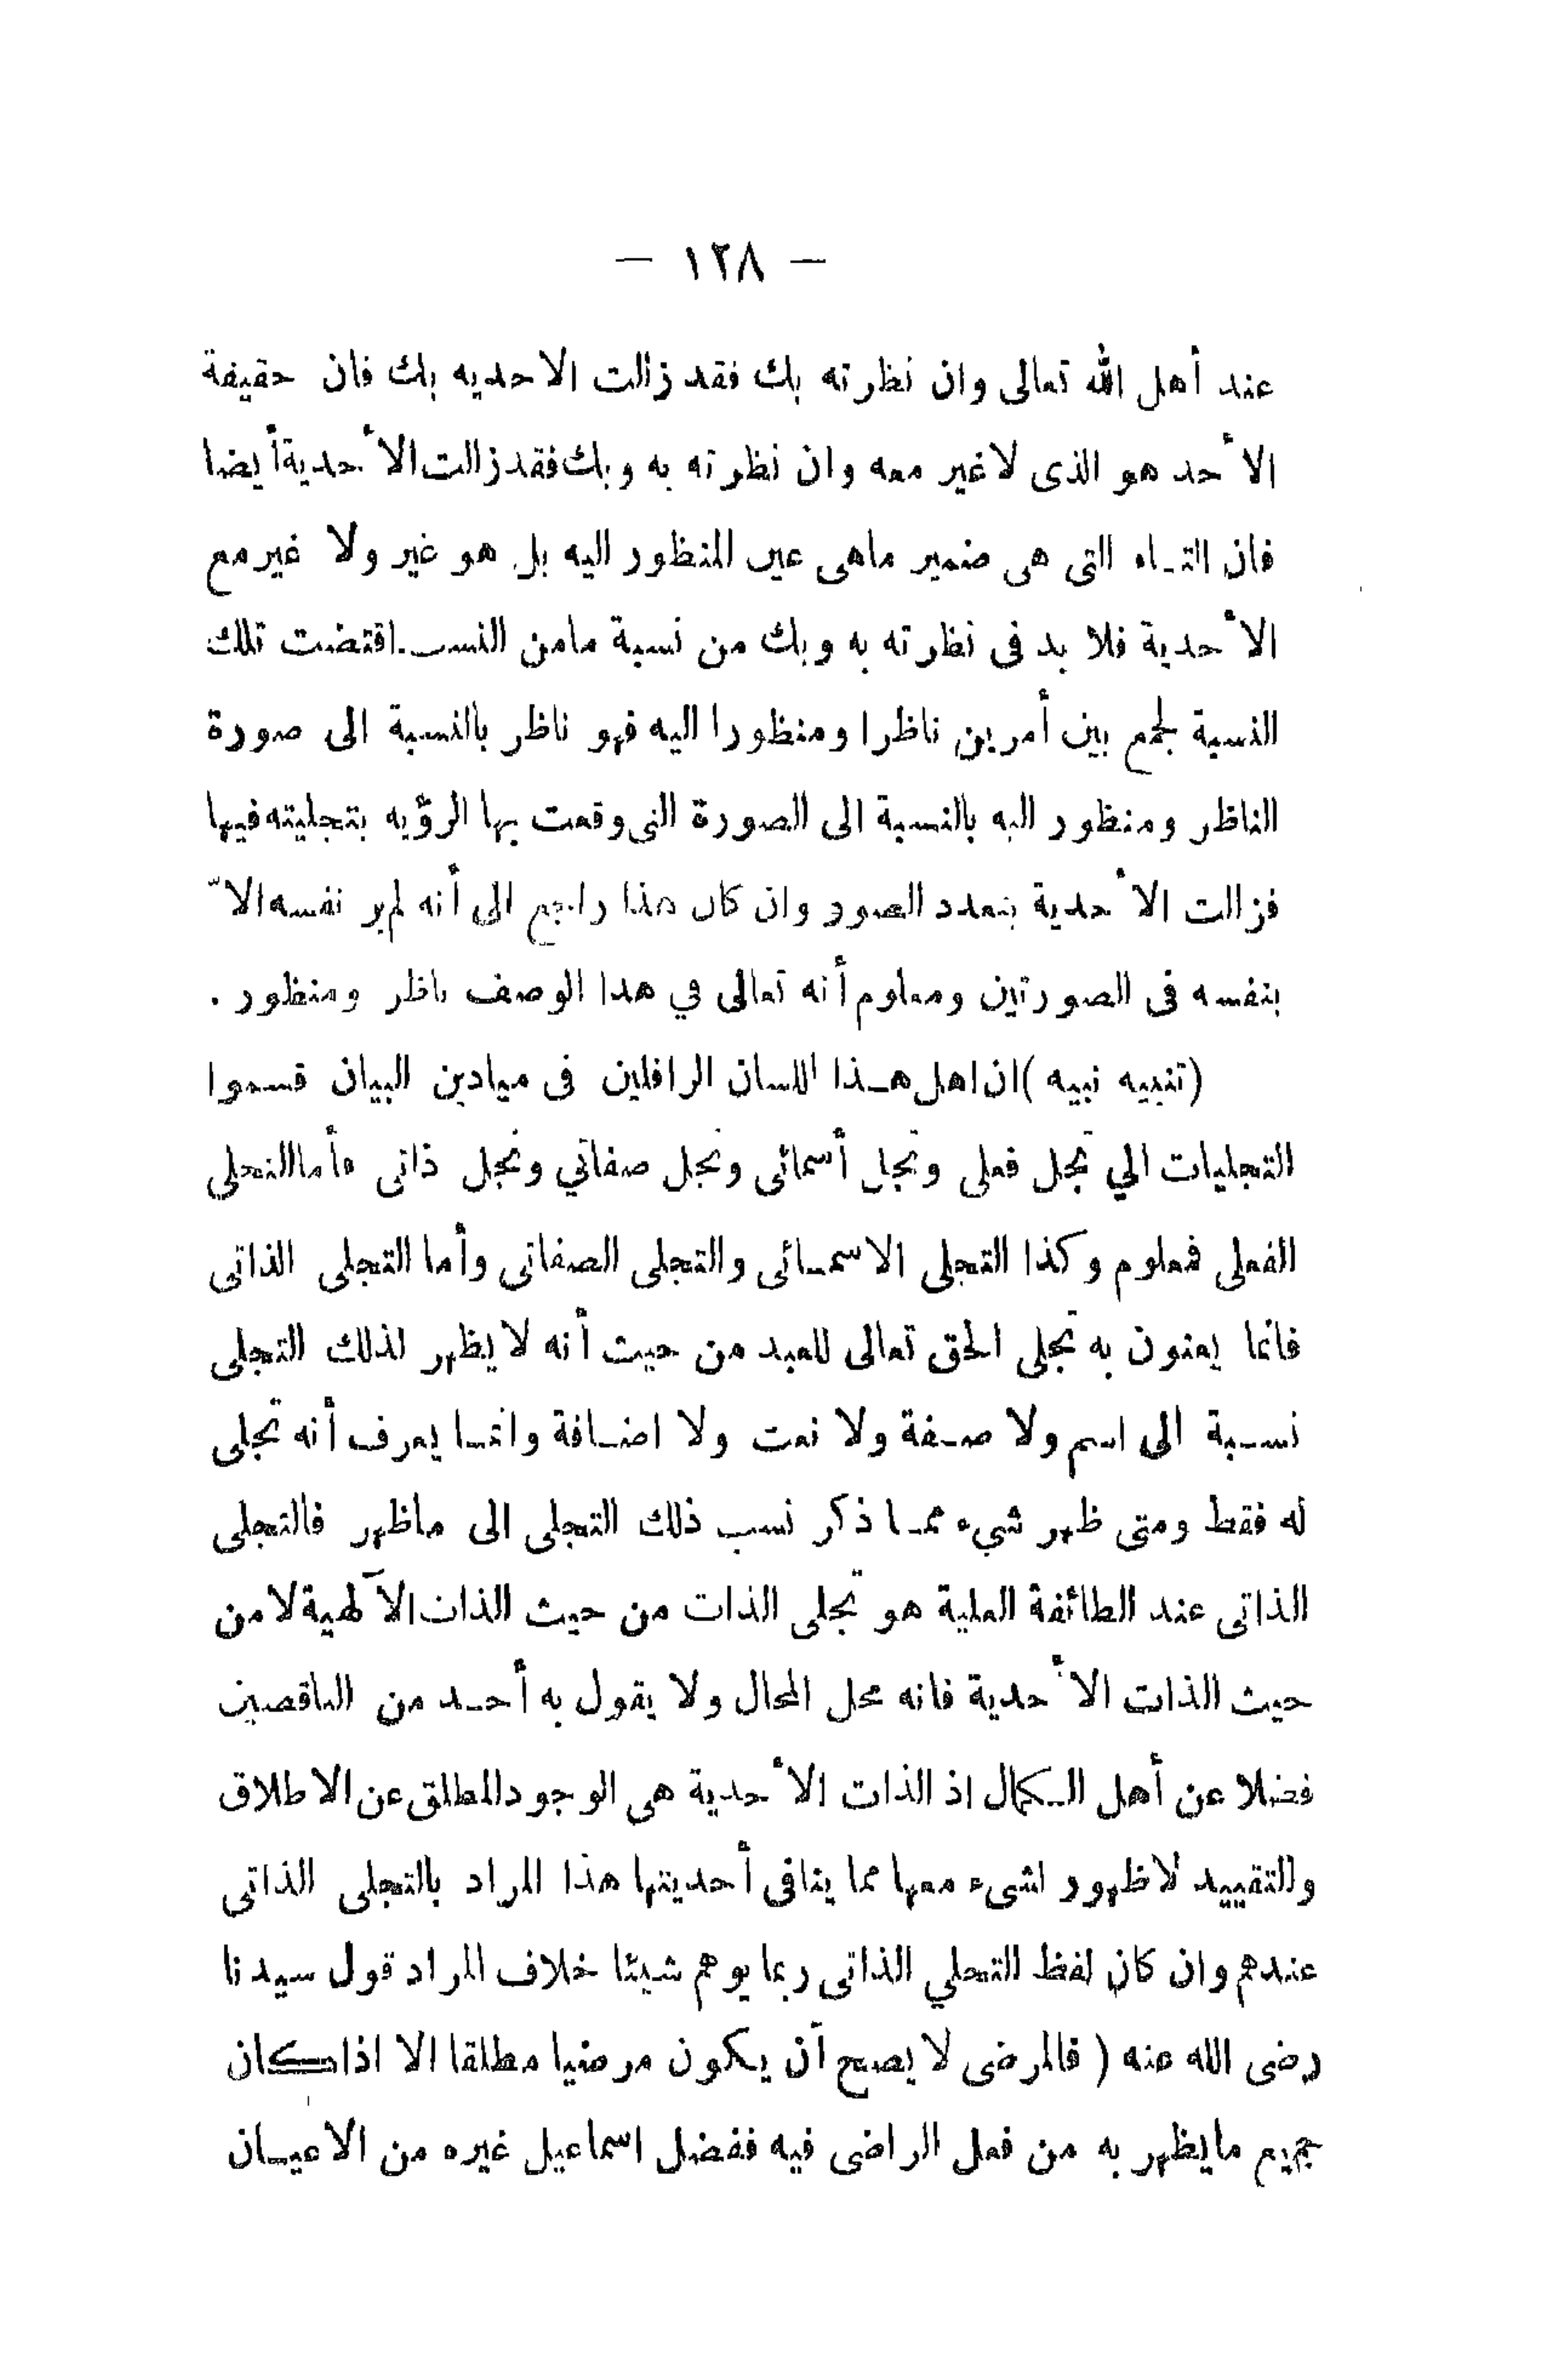 — ١٢٨ —
عند أهل الله تعالى وان نظرته بك فقد زالت الاحديه بك فان حقيقة
الأحد هو الذى لاغير معه وان نظرته به وبك فقد زالت الأحدية أيضا
فان التاء التى هى ضمير ماهى عين المنظور اليه بل هو غير ولا غير مع
الأحدية فلا بد فى نظرته به وبك من نسبة مامن النسب اقتضت تلك
النسبة لجمع بين أمرين ناظرا ومنظورا اليه فهو ناظر بالنسبة الى صورة
الناظر ومنظور اليه بالنسبة الى الصورة التى وقعت بها الرؤيه بتجليته فيها
فزالت الأحدية بتعدد الصور وان كان هذا راجع الى أنه لم ير نفسه الاّ
بنفسه فى الصورتين ومعلوم أنه تعالى في هذا الوصف ناظر ومنظور .
(تنبيه نبيه) ان اهل هذا اللسان الرافلين فى ميادين البيان قسموا
التجليات الي تجل فعلى وتجل أسمائى وتجل صفاتي وتجل ذاتى فأما التجلى
الفعلى فمعلوم وكذا التجلى الاسمائى والتجلى الصفاتى وأما التجلى الذاتى
فانما يعنون به تجلى الحق تعالى للعبد من حيث أنه لا يظهر لذلك التجلى
نسبة الى اسم ولا صفة ولا نعت ولا اضافة وانما يعرف أنه تجلى
له فقط ومتى ظهر شيء مما ذكر نسب ذلك التجلى الى ماظهر فالتجلى
الذاتى عند الطائفة العلية هو تجلى الذات من حيث الذات الآلهية لا من
حيث الذات الأحدية فانه محل المحال ولا يقول به أحد من الناقصين
فضلا عن أهل الكمال اذ الذات الأحدية هى الوجود المطلق عن الاطلاق
والتقييد لاظهور لشىء معها مما ينافى أحديتها هذا المراد بالتجلى الذاتى
عندهم وان كان لفظ التجلي الذاتى ربما يوهم شيئا خلاف المراد قول سيدنا
رضى الله عنه ( فالمرضى لا يصح أن يكون مرضيا مطلقا الا اذا كان
جميع مايظهر به من فعل الراضى فيه ففضل اسماعيل غيره من الاعيان